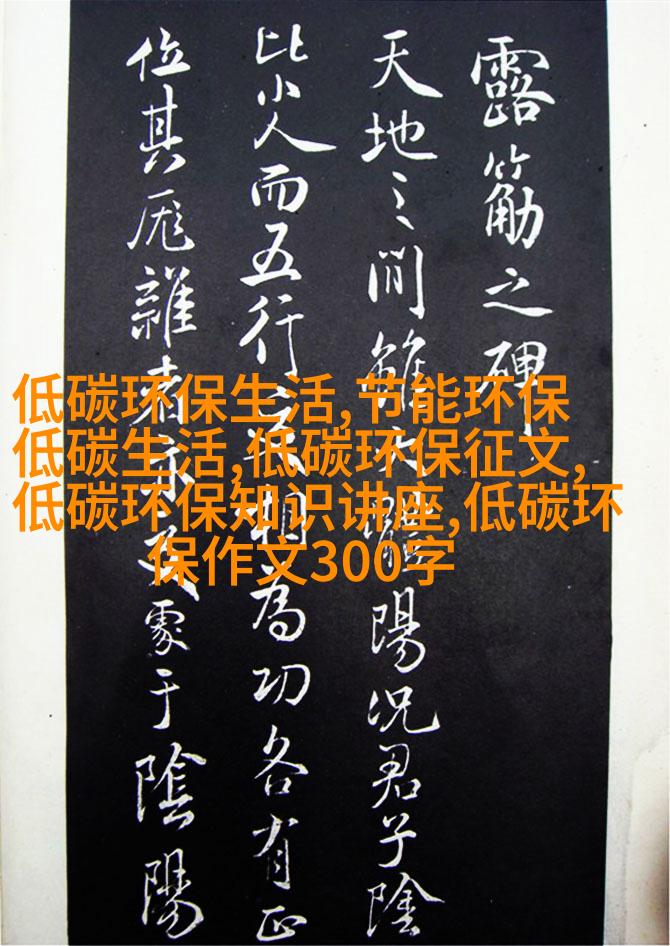 露筋之碑
天地之間雖體陽況君子陰
比小人而五行相為功各有正
位其厖雜者亦處于陰陽
低碳环保生活,节能环保
低碳生活,低碳环保征文,
低碳环保知识讲座,低碳环
保作文300字